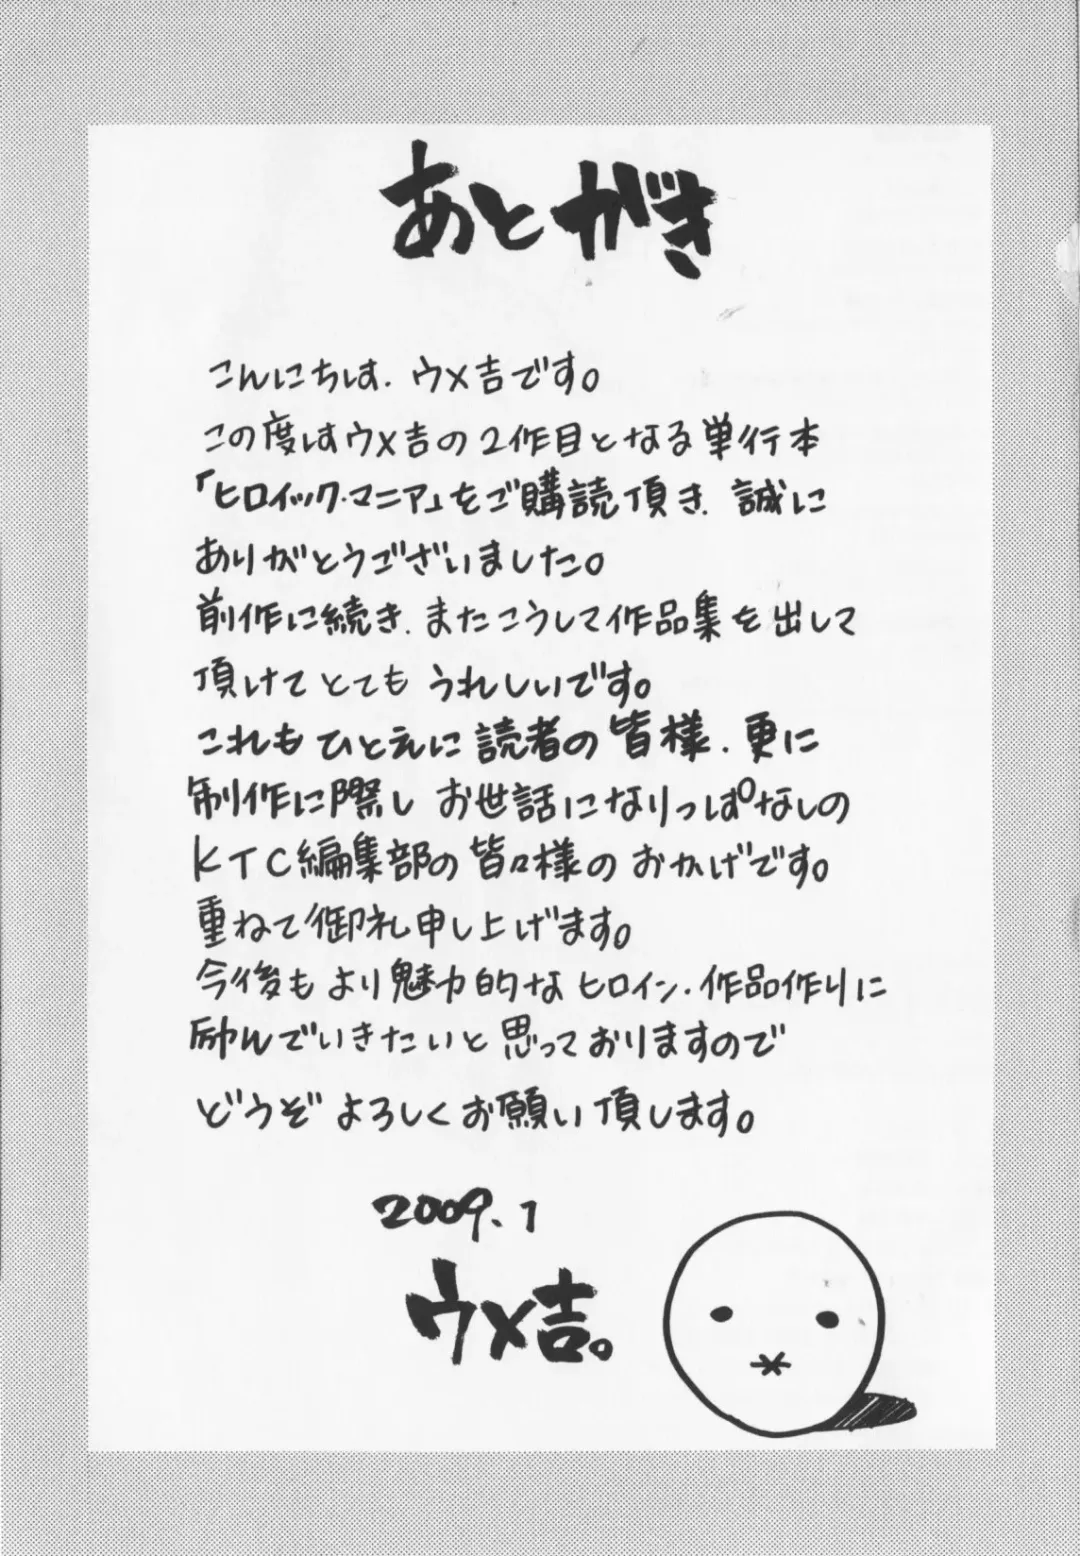 あとがき
こんにちは、ウメ吉です。
この度はウメ吉の2作目となる単行本
「ヒロイック・マニア」をご購読頂き、誠に
ありがとうございました。
前作に続き、またこうして作品集を出して
頂けてとてもうれしいです。
これもひとえに読者の皆様、更に
制作に際しお世話になりっぱなしの
KTC編集部の皆々様のおかげです。
重ねて御礼申し上げます。
今後もより魅力的なヒロイン・作品作りに
励んでいきたいと思っておりますので
どうぞよろしくお願い頂します。
2009.1
ウメ吉。